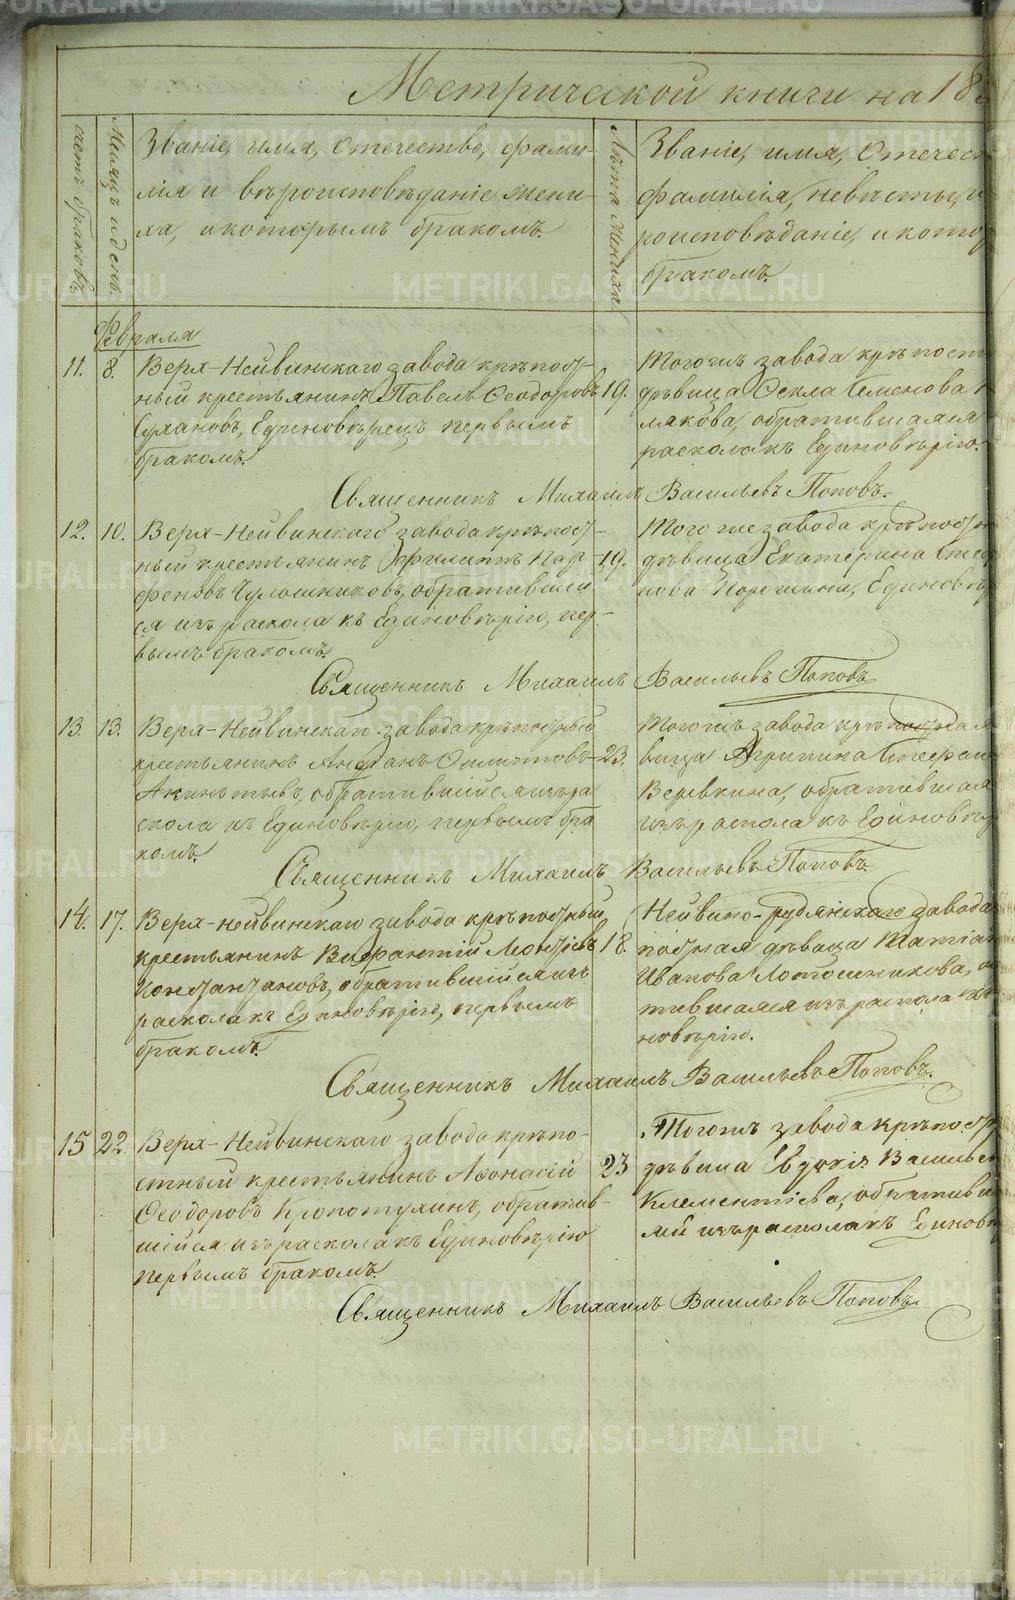 Метрической книги на 18
счетъ браковъ
Мѣсяцъ и день.
Званіе, имя, отечество, фами-
лія и вѣроисповѣданіе жени-
ха, и которымъ бракомъ.
Лѣта жениха.
Званіе, имя, отечест
фамилія, невѣсты, и
роисповѣданіе, и котор
бракомъ.
Февраля
11. 8. Верх-Нейвинскаго завода крѣпост-
ный крестьянинъ Павелъ Ѳеодоровъ
Сухановъ, Единовѣрецъ первымъ
бракомъ.
19.
Тогожъ завода крѣпост
дѣвица Ѳекла Семенова
лякова, обратившаяся
раскола къ Единовѣрію.
Священникъ Михаилъ Васильевъ Поповъ.
12. 10. Верх-Нейвинскаго завода крѣпост-
ный крестьянинъ Филиппъ Пар-
феновъ обратившій
ся изъ раскола къ Единовѣрію, пер-
вымъ бракомъ.
19.
Того же завода крѣпост
дѣвица Екатерина Сте
нова Единовѣ
Священникъ Михаилъ Васильевъ Поповъ
13. 13. Верх-Нейвинскаго завода крѣпостный
крестьянинъ
обратившійся изъ ра
скола къ Единовѣрію, первымъ бра
комъ.
23.
Тогожъ завода крѣпостная
вица Агрипина Стефан
Веревкина, обратившая
изъ раскола къ Единовѣр
Священникъ Михаилъ Васильевъ Поповъ.
14. 17. Верх-нейвинскаго завода крѣпостный
крестьянинъ Леонтіевъ
Констанзановъ, обратившійся изъ
раскола къ Единовѣрію, первымъ
бракомъ.
18.
Нейвино-рудянскаго завода
постная дѣвица Татіан
Иванова Лотошникова, о
тившаяся изъ раскола къ
новѣрію.
Священникъ Михаилъ Васильевъ Поповъ.
15 22. Верх-Нейвинскаго завода крѣпо-
стный крестьянинъ Аѳонасій
Ѳеодоровъ Кропотухинъ, обратив-
шійся изъ раскола къ Единовѣрію
первымъ бракомъ.
23
Тогожъ завода крѣпостн
дѣвица Евдокія Васильев
Клементіева, обративша
изъ раскола къ Единовѣ
Священникъ Михаилъ Васильевъ Поповъ.
METRIKI.GASO-URAL.RU